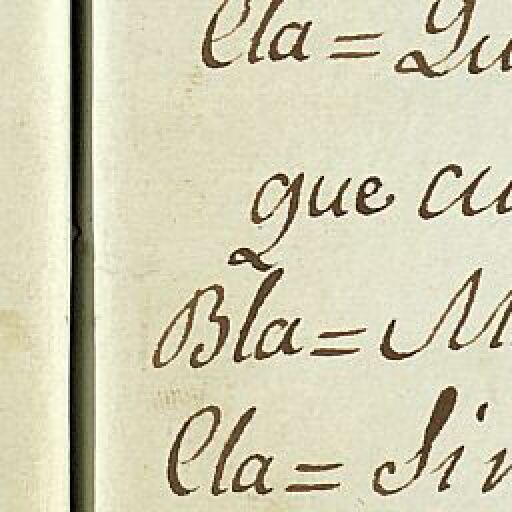 Cla = Qu
que cu
Bla = M
Cla = Sin